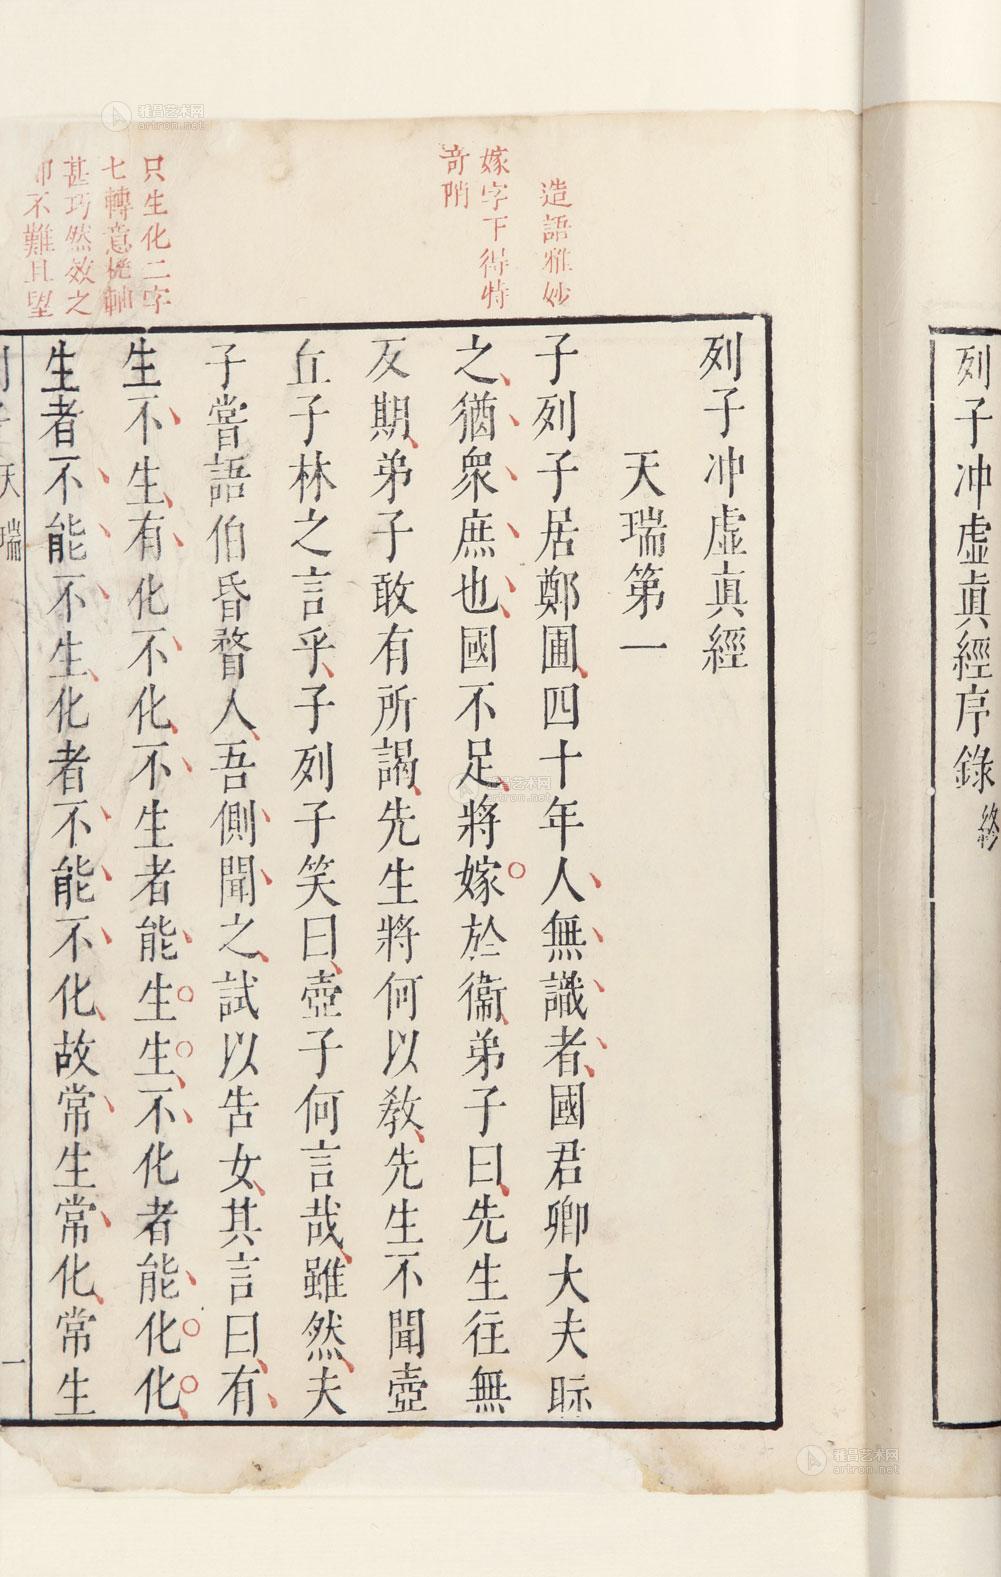 列子冲虛眞經序錄終
列子冲虛眞經
天瑞第一
子列子居鄭圃四十年人無識者國君卿大夫眎
之猶衆庶也國不足將嫁於衞弟子曰先生往無
反期弟子敢有所謁先生將何以敎先生不聞壺
丘子林之言乎子列子笑曰壺子何言哉雖然夫
子嘗語伯昏瞀人吾側聞之試以告女其言曰有
生不生有化不化不生者能生生不化者能化化
生者不能不生化者不能不化故常生常化常生
造語雅妙
嫁字下得特
奇陗
只生化二字
七轉意機軸
甚巧然效之
卽不難且望
列子 天瑞 一
雅昌艺术网
artron.net
雅昌艺术网
artron.net
雅昌艺术网
artron.net